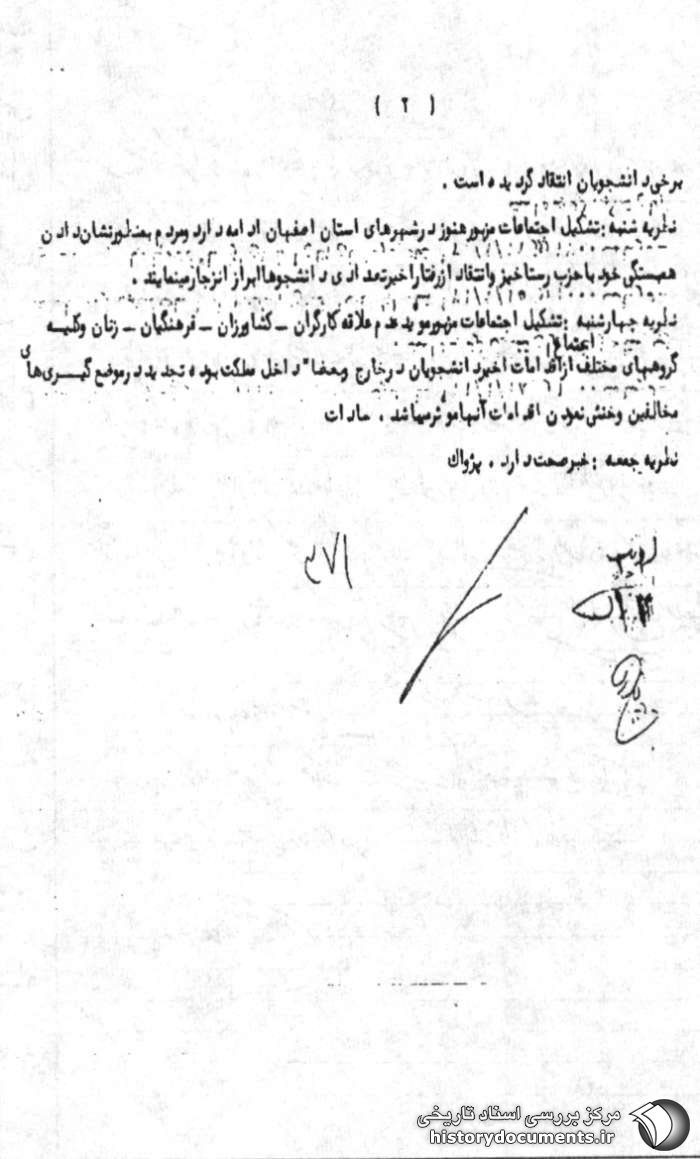 ( ۲ )
برخی دانشجویان انتقاد گردیده است .
نظریه شنبه : تشکیل اجتماعات مزبور هنوز در شهرهای استان اصفهان ادامه دارد و مردم بمنظور نشان دادن
همبستگی خود با حزب رستاخیز و انتقاد از رفتار اخیر تعدادی دانشجوها ابراز انزجار مینمایند .
نظریه چهارشنبه : تشکیل اجتماعات مزبور موید عدم علاقه کارگران ـ کشاورزان ـ فرهنگیان ـ زنان وکلیه
اجتماع
گروههای مختلف از اقدامات اخیر دانشجویان در خارج و بعضا" داخل مملکت بوده تجدید در موضع گیری های
مخالفین و خنثی نمودن اقدامات آنها موثر میباشد . سادات
نظریه جمعه : خبر صحت دارد . پژواک
۳۷۱
مرکز بررسی اسناد تاریخی
historydocuments.ir